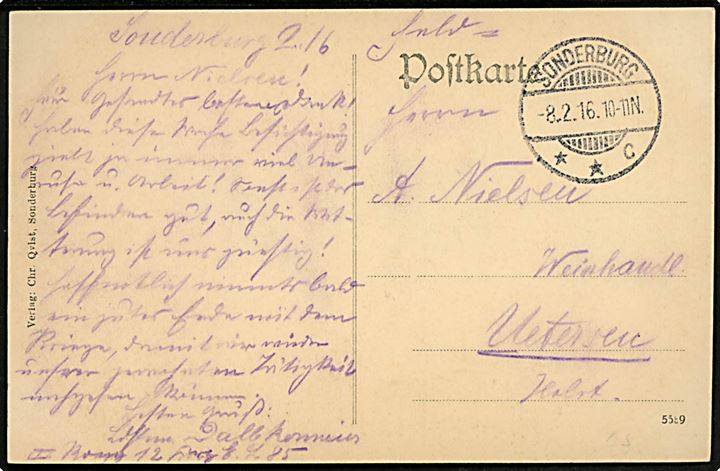 Sonderburg 2.16
Herrn Nielsen!
Für Gesandtes besten Dank!
haben diese Woche Besichtigung
viel Un-
ruhe u. Arbeit! Sonst ist das
Befinden gut, auch die Wit-
terung ist uns günstig!
Hoffentlich nimmts bald
ein gutes Ende mit dem
Kriege, damit wir wieder
unsrer gewohnten Tätigkeit
nachgehen können.
Besten Gruß:
12
85
Verlag: Chr. Qvist, Sonderburg
Feld=
Postkarte
SONDERBURG
-8.2.16.10-11N.
* * C
Herrn
A. Nielsen
Weinhandl.
Uetersen
Holst.